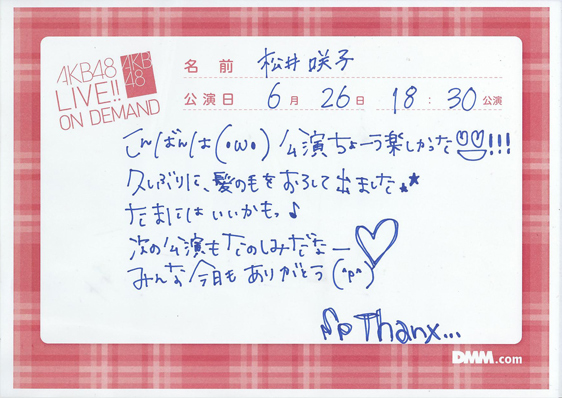 AKB48
LIVE!!
ON DEMAND
AKB
48
名前 松井咲子
公演日 6月 26日 18:30公演
こんばんは(・ω・) 公演ちょーう楽しかった!!!
久しぶりに、髪の毛をおろして出ました★★
たまにはいいかもっ♪
次の公演もたのしみだなー♡
みんな今日もありがとう(^p^)
Thanx...
DMM.com